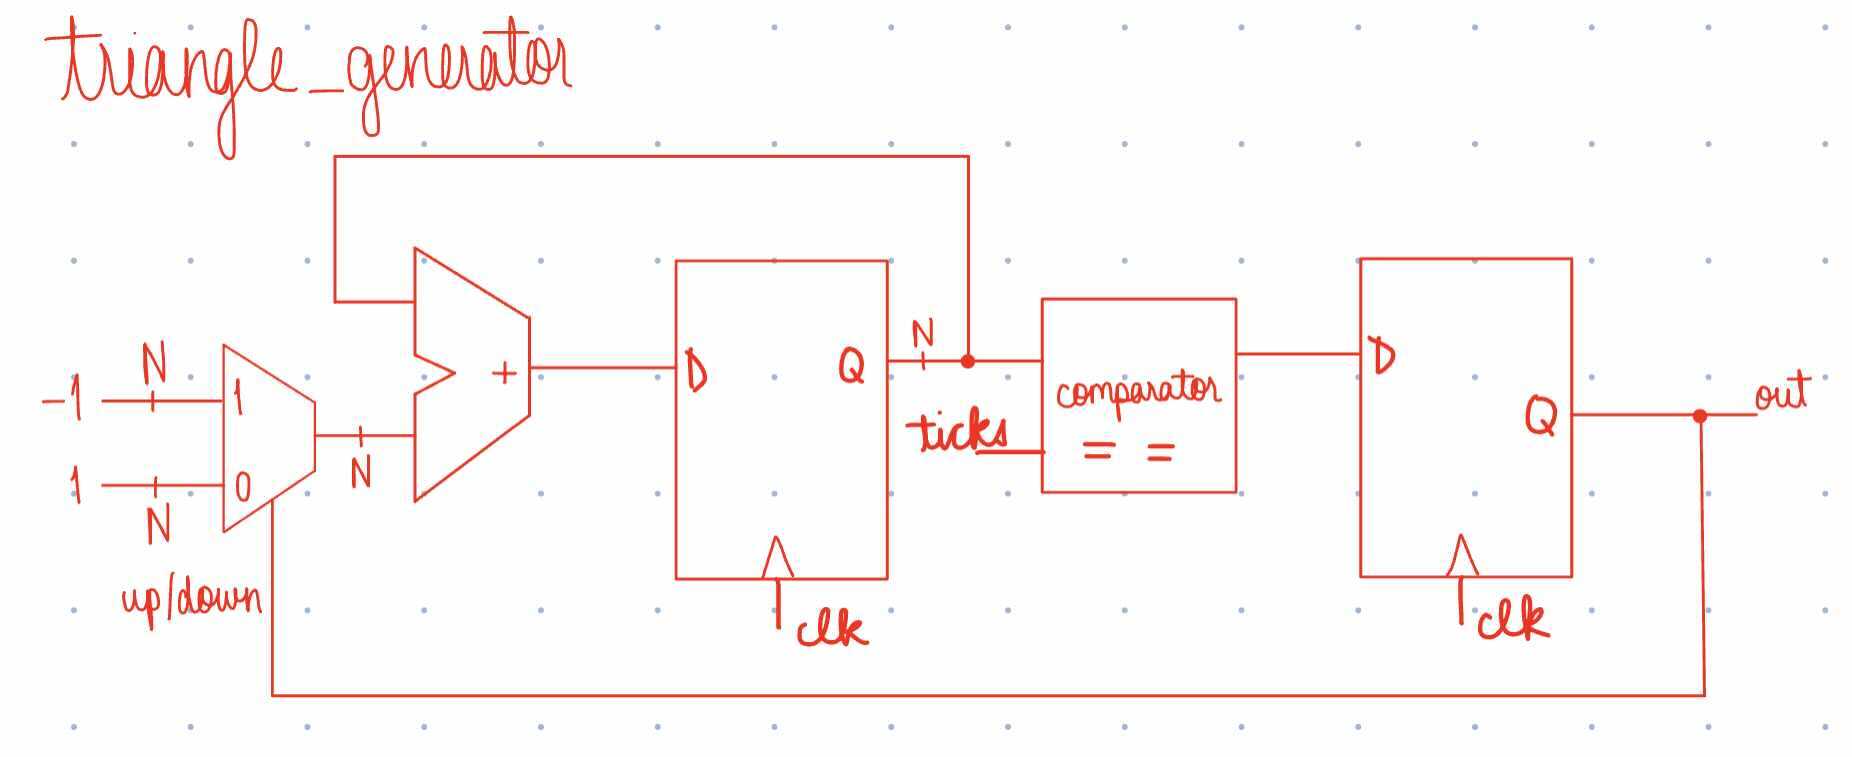 triangle_generator
N
-1
1
N
1
0
N
up/down
+
D
Q
clk
N
ticks
comparator
= =
D
Q
clk
out